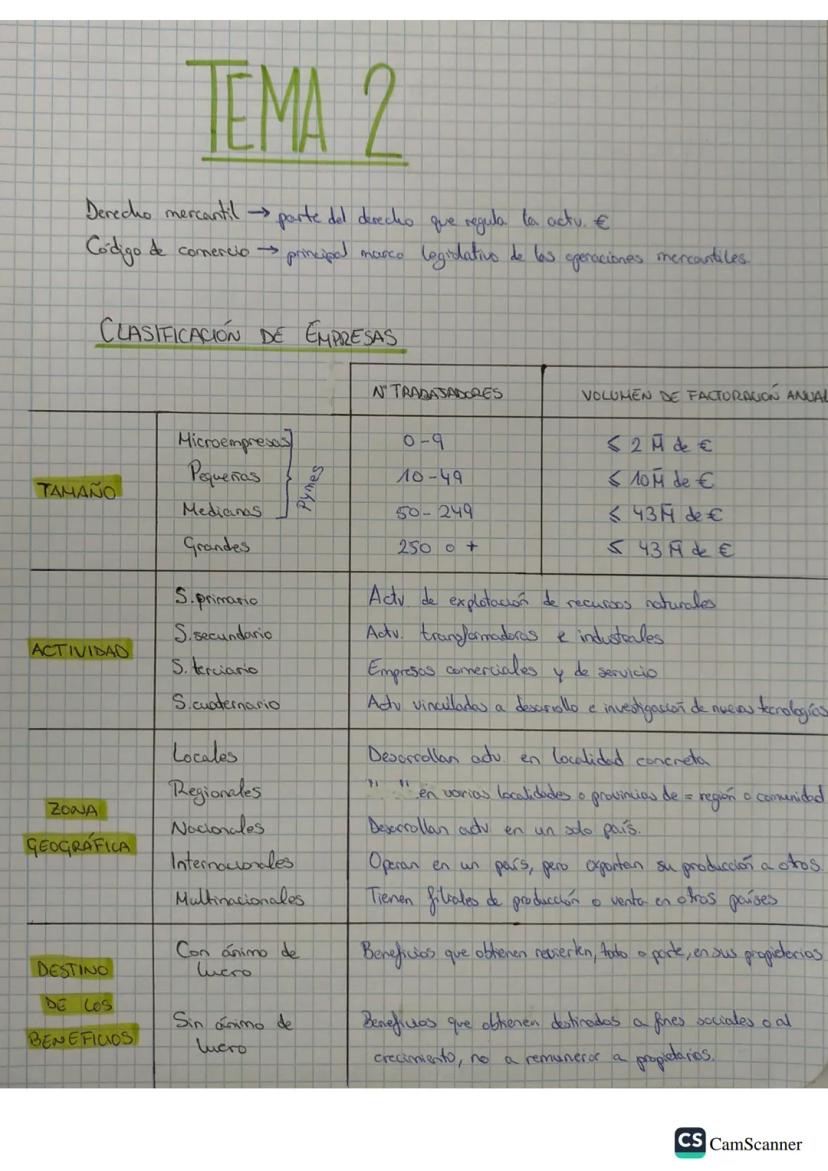 TEMA 2
Derecho mercantil → parte del derecho que regula la actv. €
Código de comercio → principal marco legislativo de las operaciones mercantiles.
CLASIFICACIÓN DE EMPRESAS
Nº TRABAJADORES VOLUMEN DE FACTORACIÓN ANUAL
TAMAÑO
Pymes
Microempresas 0-9 ≤ 2 M de €
Pequeñas 10-49 ≤ 10 M de €
Medianas 50-249 ≤ 43 M de €
Grandes 250 o + ≤ 43 M de €
ACTIVIDAD
S.primario Actv. de explotación de recursos naturales
S.secundario Actv. transformadoras e industriales
S.terciario Empresas comerciales y de servicio
S.cuaternario Actv vinculadas a desarrollo e investigación de nuevas tecnologías
ZONA
GEOGRÁFICA
Locales Desarrollan actv. en localidad concreta
Regionales " " en varias localidades o provincias de = región o comunidad
Nacionales Desarrollan actv en un solo país.
Internacionales Operan en un país, pero exportan su producción a otros
Multinacionales Tienen filiales de producción o venta en otros países
DESTINO
DE LOS
BENEFICIOS
Con ánimo de Beneficios que obtienen revierten, todo o parte, en sus propietarios
lucro
Sin ánimo de Beneficios que obtienen destinados a fines sociales o al
lucro crecimiento, no a remunerar a propietarios.
CS CamScanner